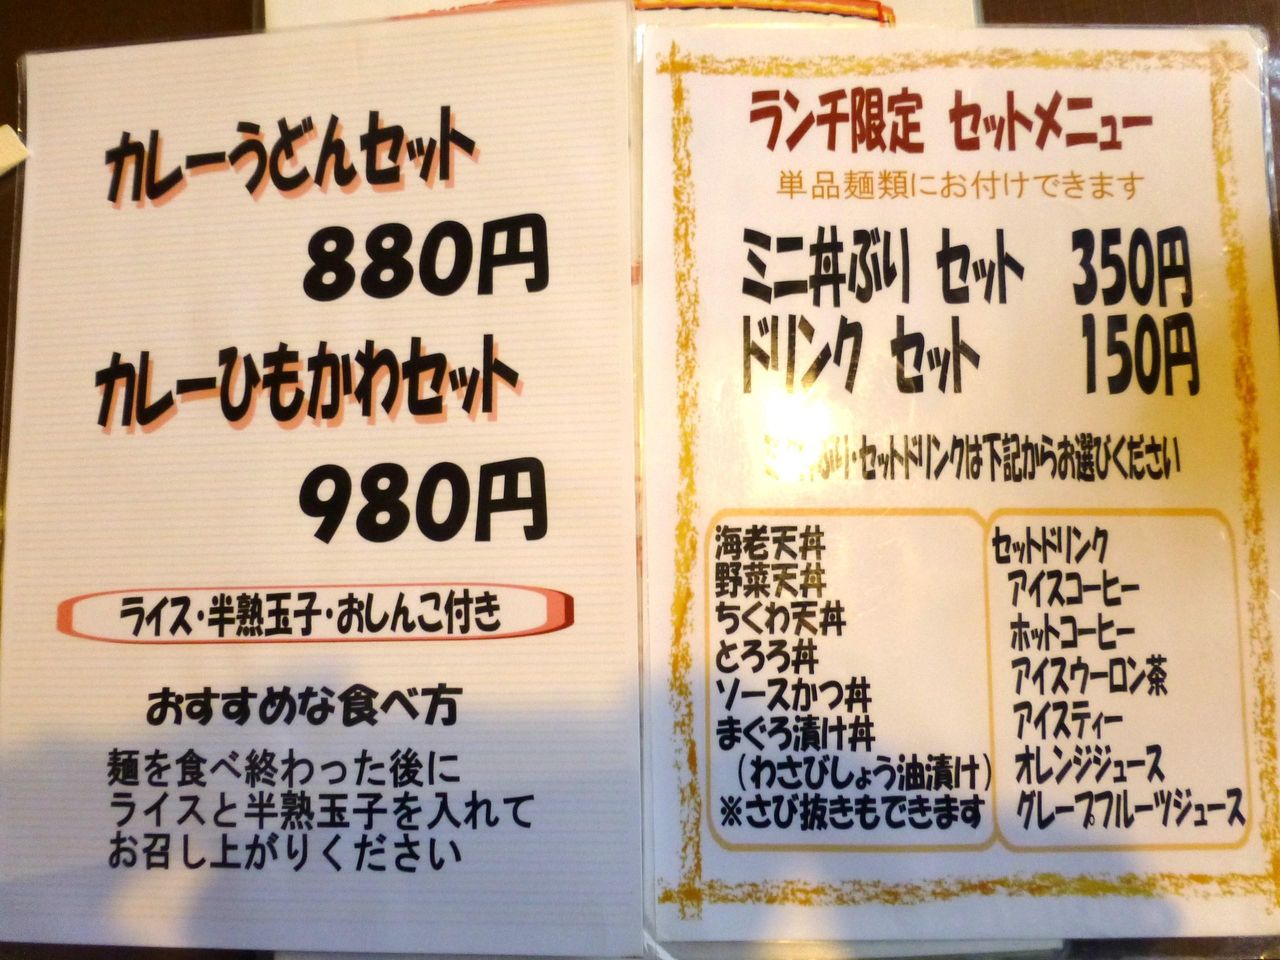 カレーうどんセット
880円
カレーひもかわセット
980円
ライス・半熟玉子・おしんこ付き
おすすめな食べ方
麺を食べ終わった後に
ライスと半熟玉子を入れて
お召し上がりください
ランチ限定 セットメニュー
単品麺類にお付けできます
ミニ丼ぶり セット 350円
ドリンク セット 150円
ぶり・セットドリンクは下記からお選びください
海老天丼
野菜天丼
ちくわ天丼
とろろ丼
ソースかつ丼
まぐろ漬け丼
(わさびしょう油漬け)
※さび抜きもできます
セットドリンク
アイスコーヒー
ホットコーヒー
アイスウーロン茶
アイスティー
オレンジジュース
グレープフルーツジュース